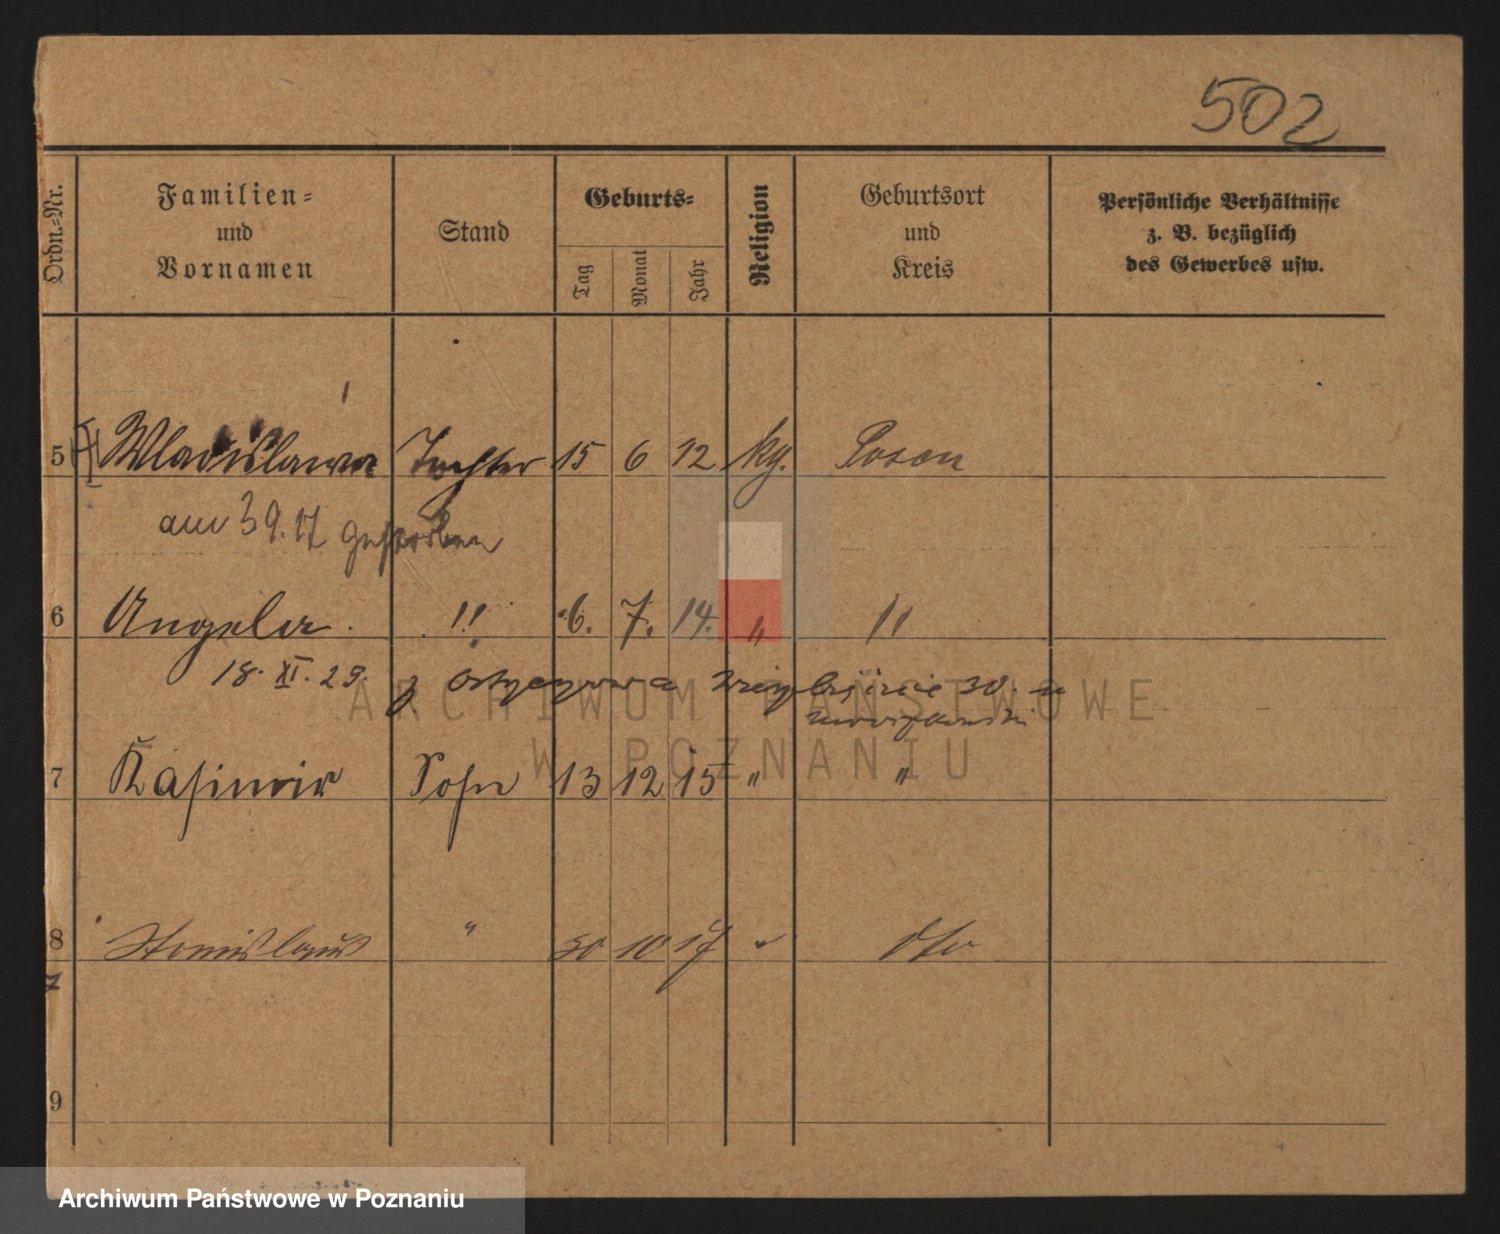 502
Ordn.=Nr.
Familien=
und
Vornamen
Stand
Geburts=
Tag
Monat
Jahr
Religion
Geburtsort
und
Kreis
Persönliche Verhältnisse
z. B. bezüglich
des Gewerbes usw.
5 Wladislawa Tochter 15 6 12 kg. Posen
am 3 9. 17 gestorben
6 Angela " 6. 7. 14. " "
18. XI. 29. z 30.
7 Kasimir Sohn 13 12 15 " "
8 Stanislaus " 30 10 17 " dto
9
ARCHIWUM PAŃSTWOWE
W POZNANIU
Archiwum Państwowe w Poznaniu